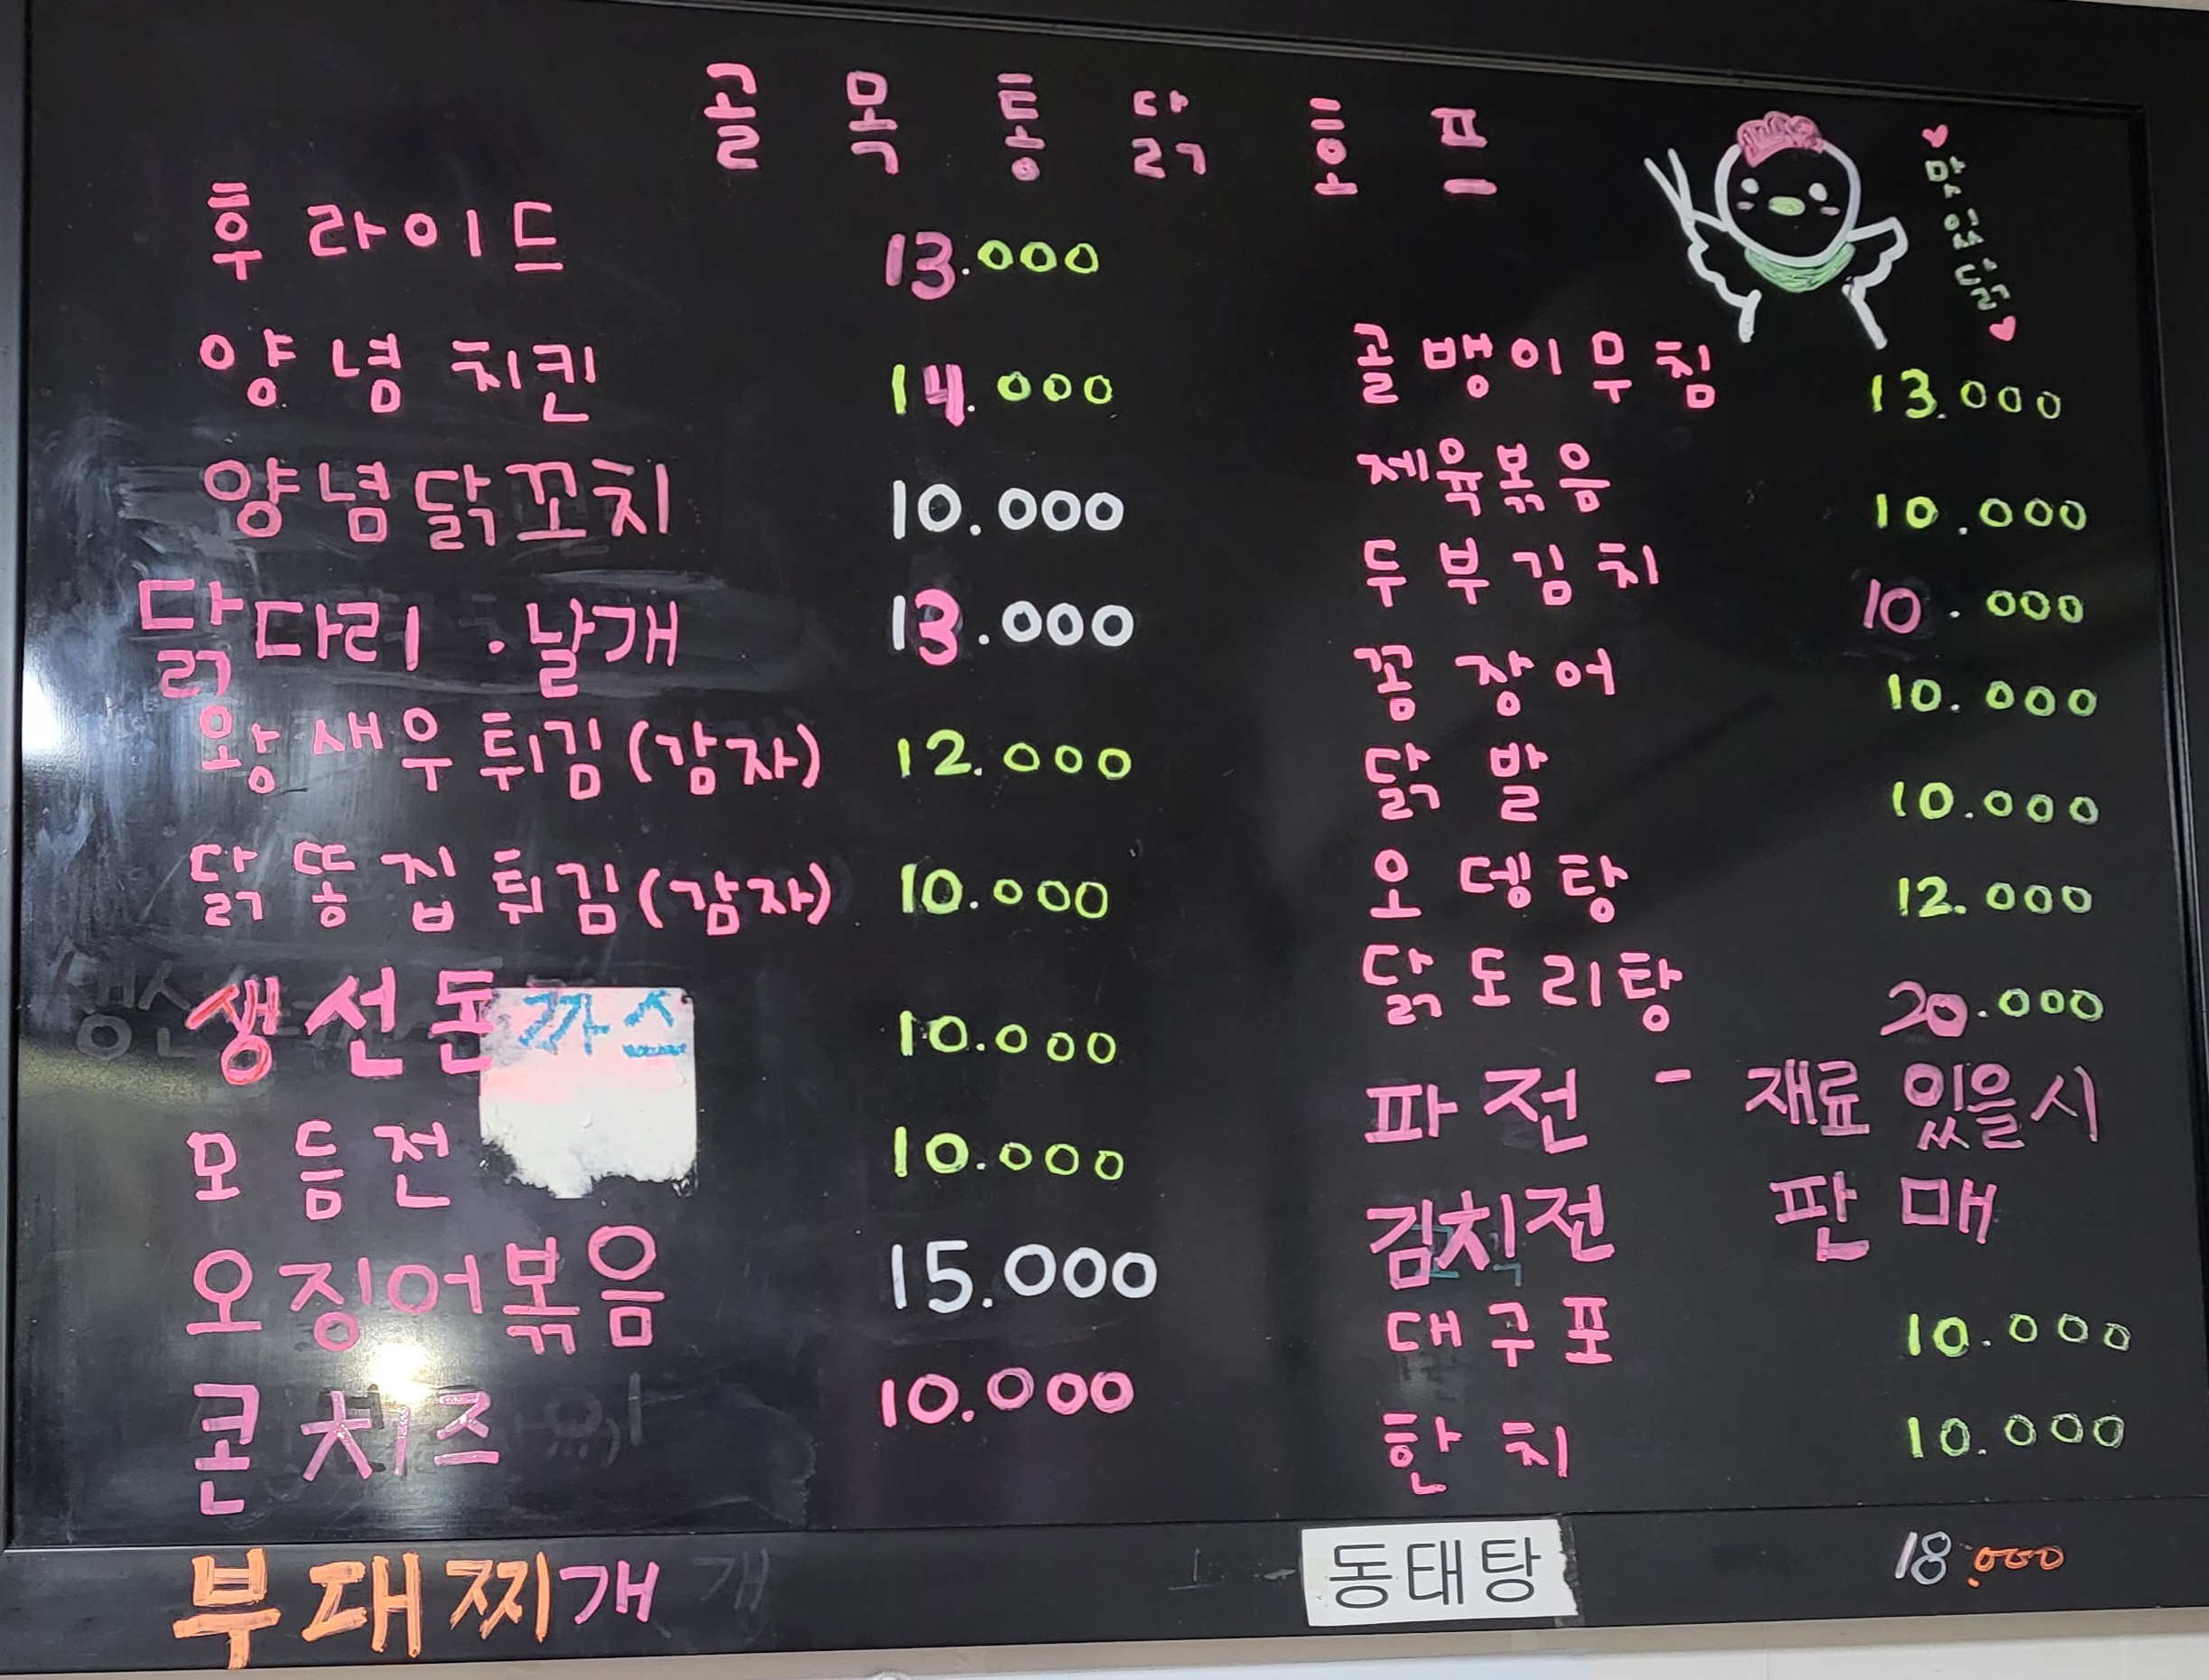 골목통닭 호프
맛있닭
후라이드 13.000
양념치킨 14.000
양념닭꼬치 10.000
닭다리 · 날개 13.000
왕새우튀김(감자) 12.000
닭똥집튀김(감자) 10.000
생선돈까스 10.000
모듬전 10.000
오징어볶음 15.000
콘치즈 10.000
부대찌개
골뱅이무침 13.000
제육볶음 10.000
두부김치 10.000
꼼장어 10.000
닭발 10.000
오뎅탕 12.000
닭도리탕 20.000
파전 - 재료 있을시
김치전 판매
대구포 10.000
한치 10.000
동태탕 18.000